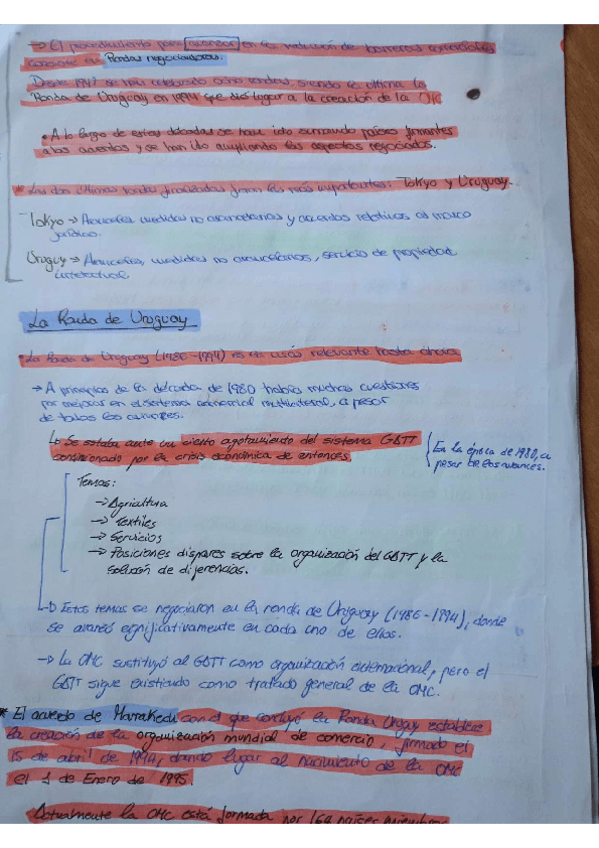 → El procedimiento para avanzar en la reducción de barreras comerciales
consiste en Rondas negociadoras.
Desde 1947 se han celebrado ocho rondas, siendo la última la
Ronda de Uruguay en 1994 que dió lugar a la creación de la OMC
• A lo largo de estas décadas se han ido sumando países firmantes
a los acuerdos y se han ido ampliando los aspectos negociados.
* Las dos últimas rondas finalizadas fueron las más importantes: Tokyo y Uruguay.
Tokyo → Aranceles, medidas no arancelarias y acuerdos relativos al marco
jurídico.
Uruguay → Aranceles, medidas no arancelarias, servicio de propiedad
intelectual.
La Ronda de Uruguay
• La Ronda de Uruguay (1986-1994) es la más relevante hasta ahora
→ A principios de la década de 1980 había muchas cuestiones
por mejorar en el sistema comercial multilateral, a pesar
de todos los avances.
↳ Se estaba ante un cierto agotamiento del sistema GATT
condicionado por la crisis económica de entonces.
En la época de 1980, a
pesar de los avances.
Temas:
→ Agricultura
→ Textiles
→ Servicios
→ Posiciones dispares sobre la organización del GATT y la
solución de diferencias.
→ Estos temas se negociaron en la ronda de Uruguay (1986-1994), donde
se avanzó significativamente en cada uno de ellos.
→ La OMC sustituyó al GATT como organización internacional, pero el
GATT sigue existiendo como tratado general de la OMC.
* El acuerdo de Marrakech con el que concluyó la Ronda Urugay establece
la creación de la organización mundial de comercio, firmado el
15 de abril de 1994, dando lugar al nacimiento de la OMC
el 1 de Enero de 1995.
Actualmente la OMC está formada por 164 países miembros